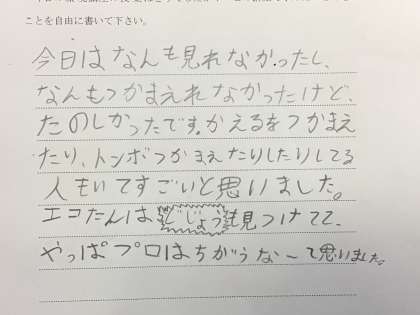 ことを自由に書いて下さい。
今日はなんも見れなかったし、
なんもつかまえれなかったけど、
たのしかったです。かえるをつかまえ
たり、トンボつかまえたりしたりしてる
人もいてすごいと思いました。
エコたんはどじょう見つけてて、
やっぱプロはちがうなーて思いました。